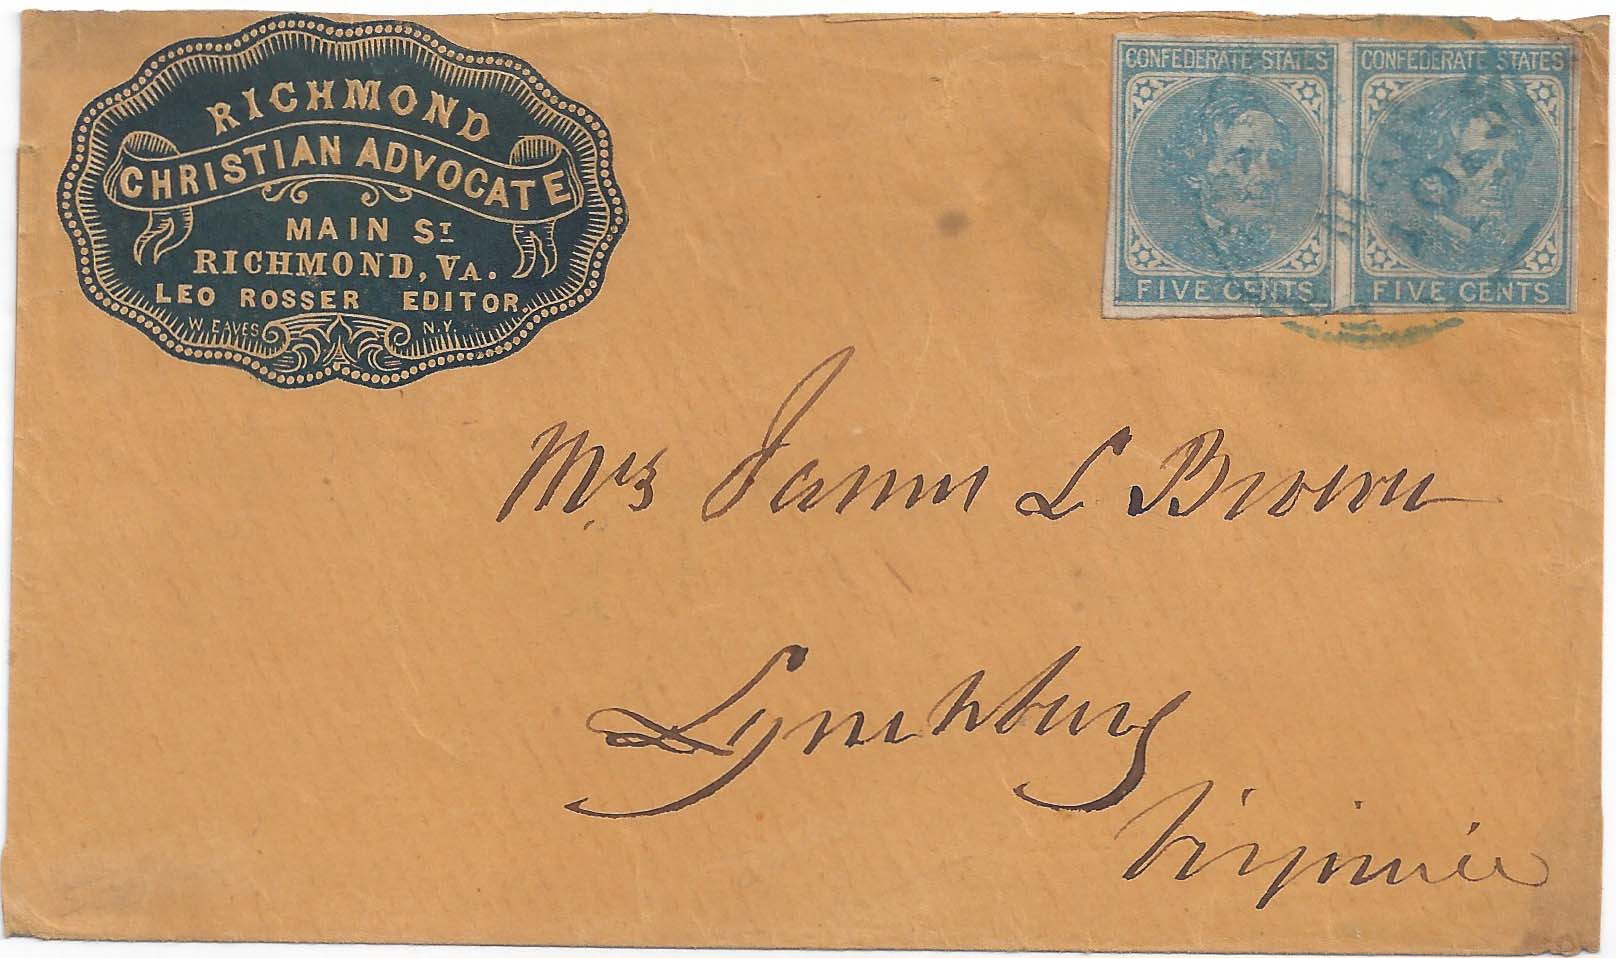 RICHMOND
CHRISTIAN ADVOCATE
MAIN ST
RICHMOND, VA.
LEO ROSSER EDITOR.
W. EAVES N.Y.
CONFEDERATE STATES
FIVE CENTS
CONFEDERATE STATES
FIVE CENTS
Mrs James L Brown
Lynchburg
Virginia